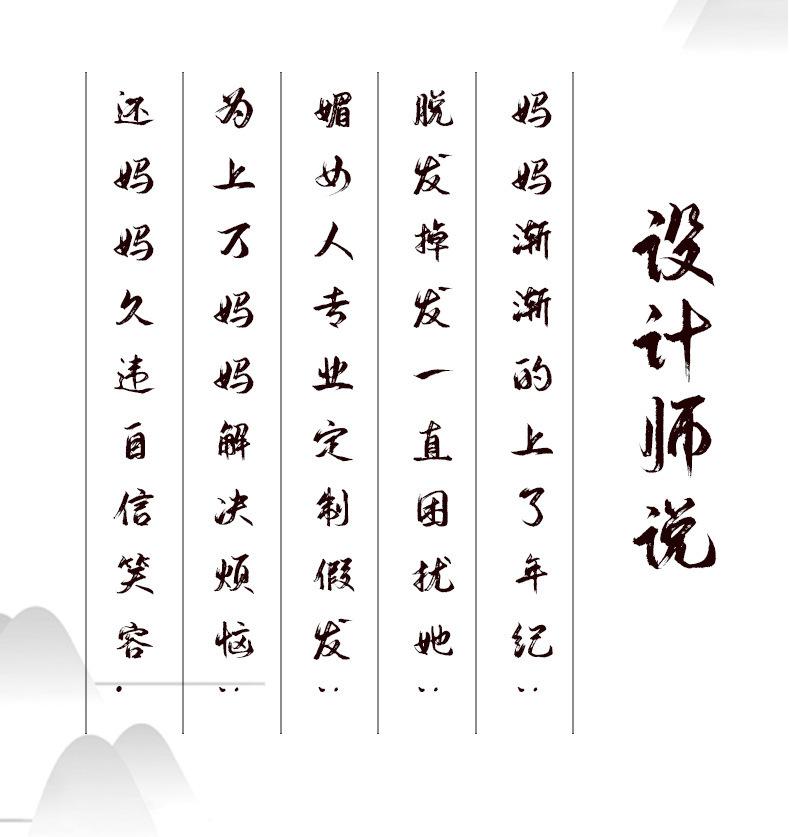 设计师说
妈妈渐渐的上了年纪..
脱发掉发一直困扰她..
媚女人专业定制假发..
为上万妈妈解决烦恼..
还妈妈久违自信笑容.